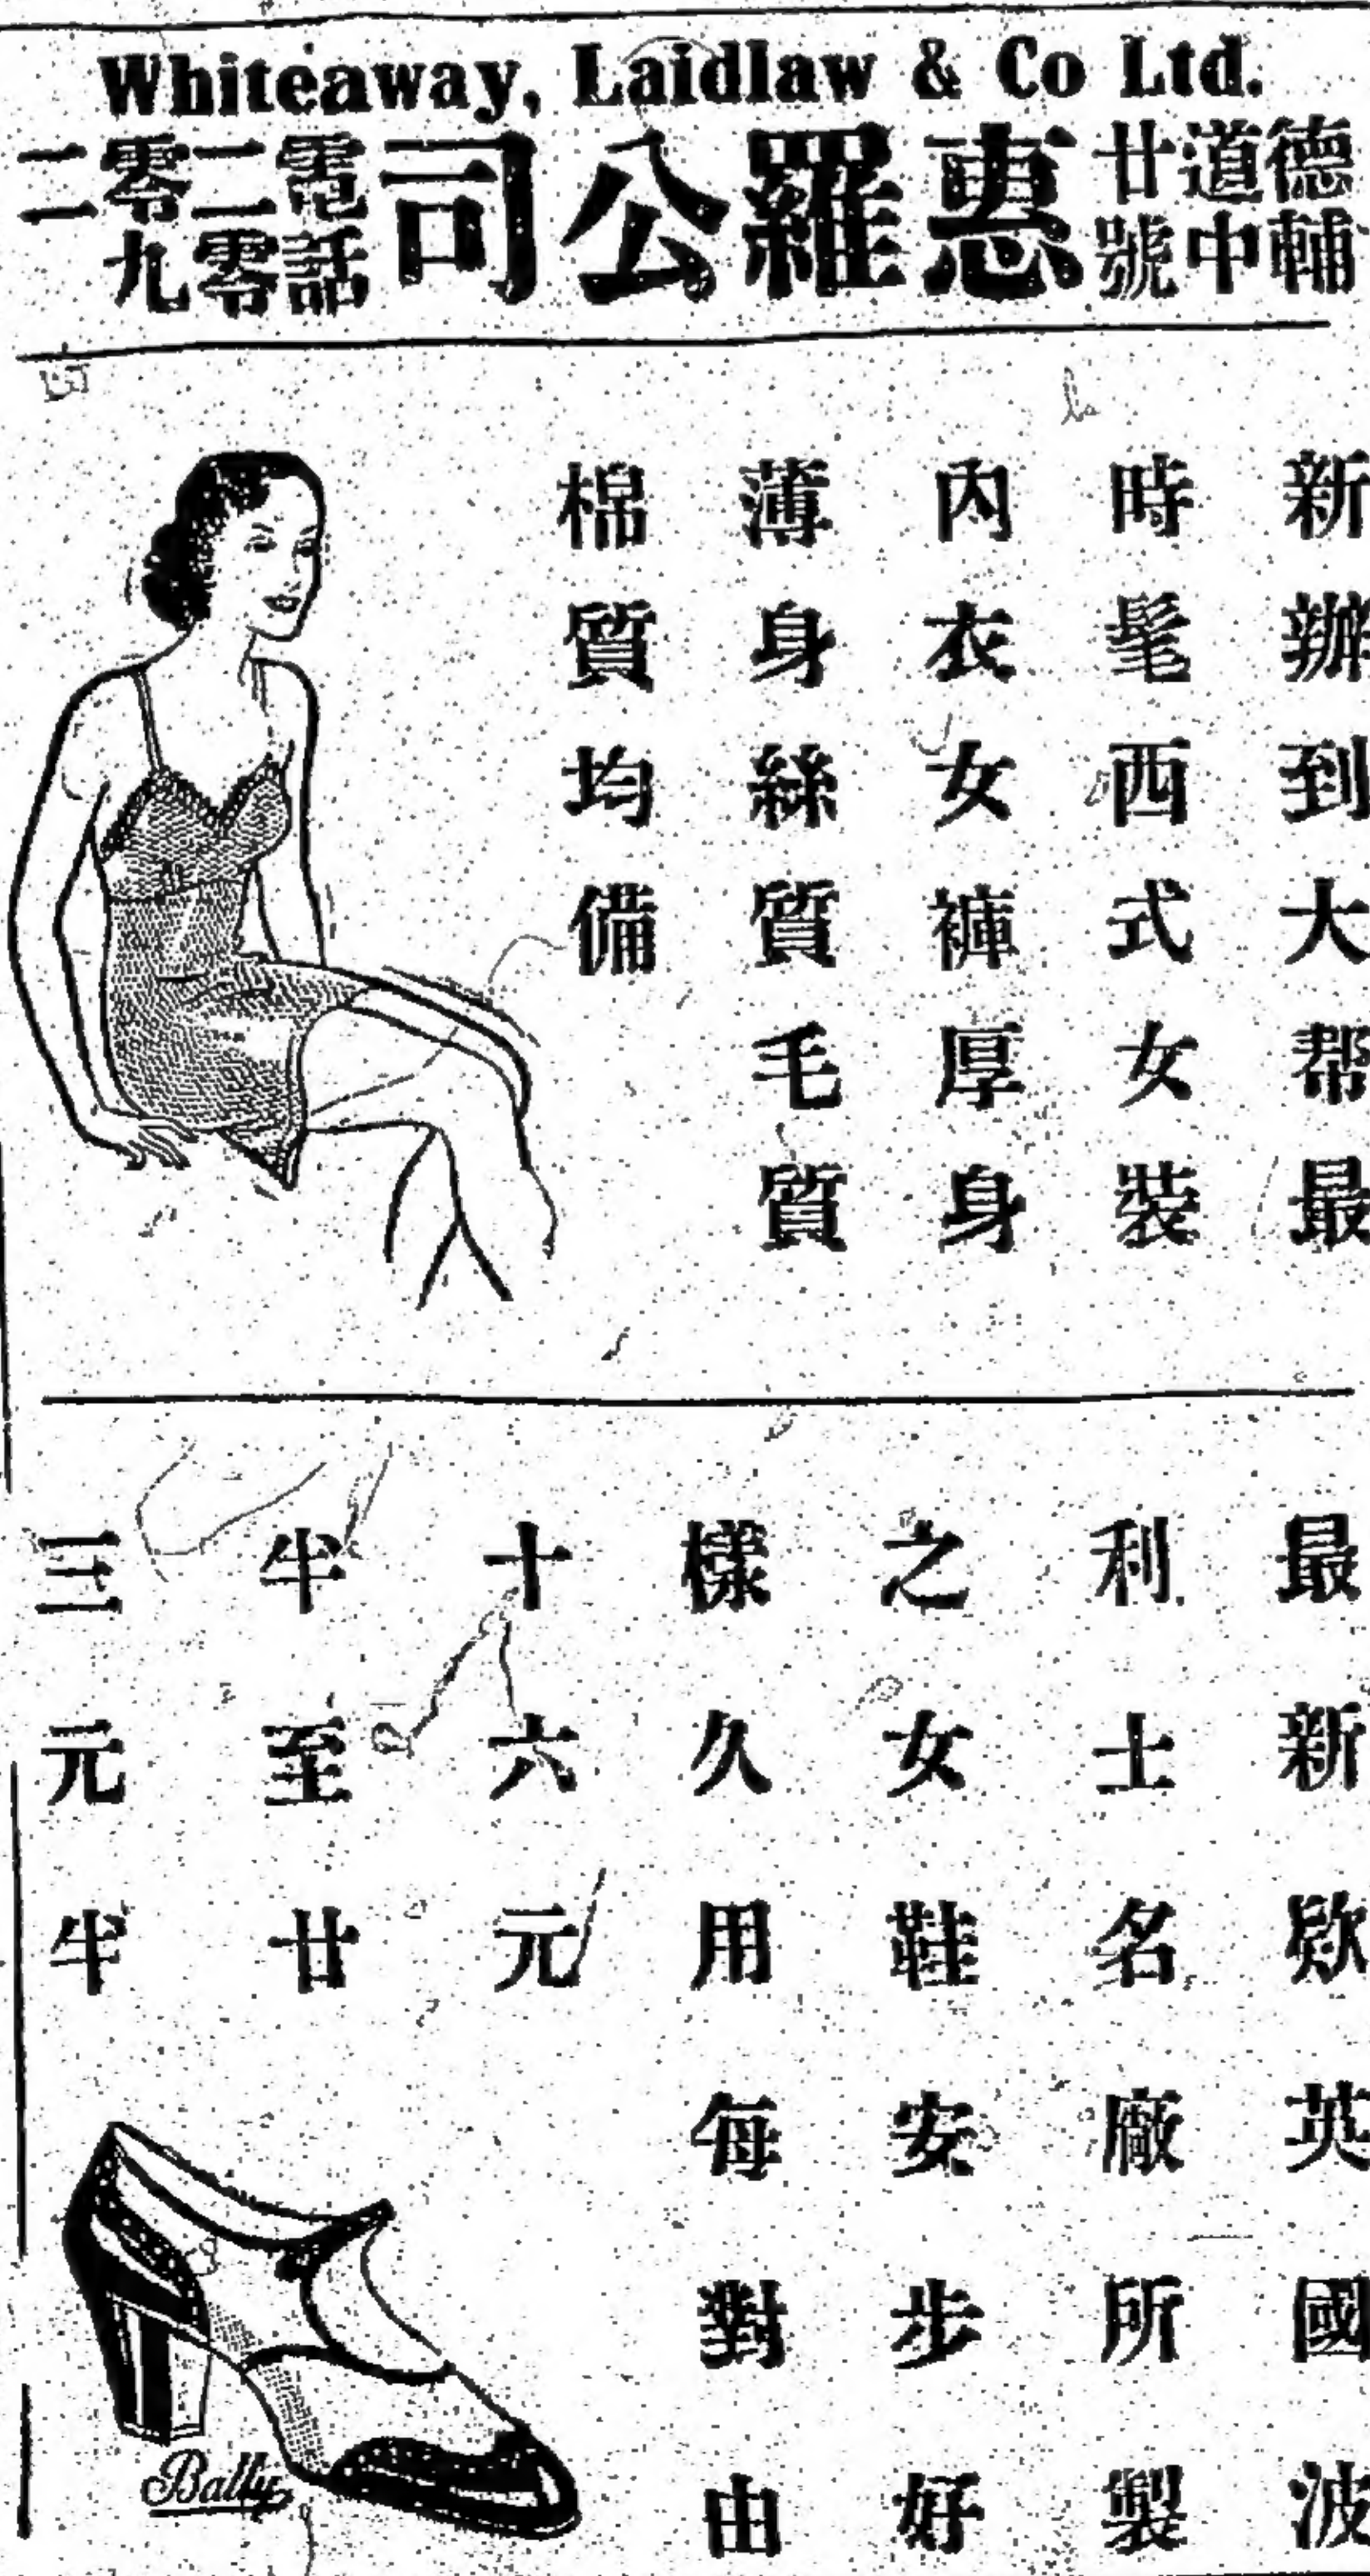 Whiteaway, Laidlaw & Co Ltd.
德輔
道中
廿號
惠羅公司
電話
二零
零九
二
新辦到大帮最
時髦西式女裝
內衣女褲厚身
薄身絲質毛質
棉質均備
最新欵英國波
利士名廠所製
之女鞋安步好
樣久用每對由
十六元
半至廿
三元半
Bally